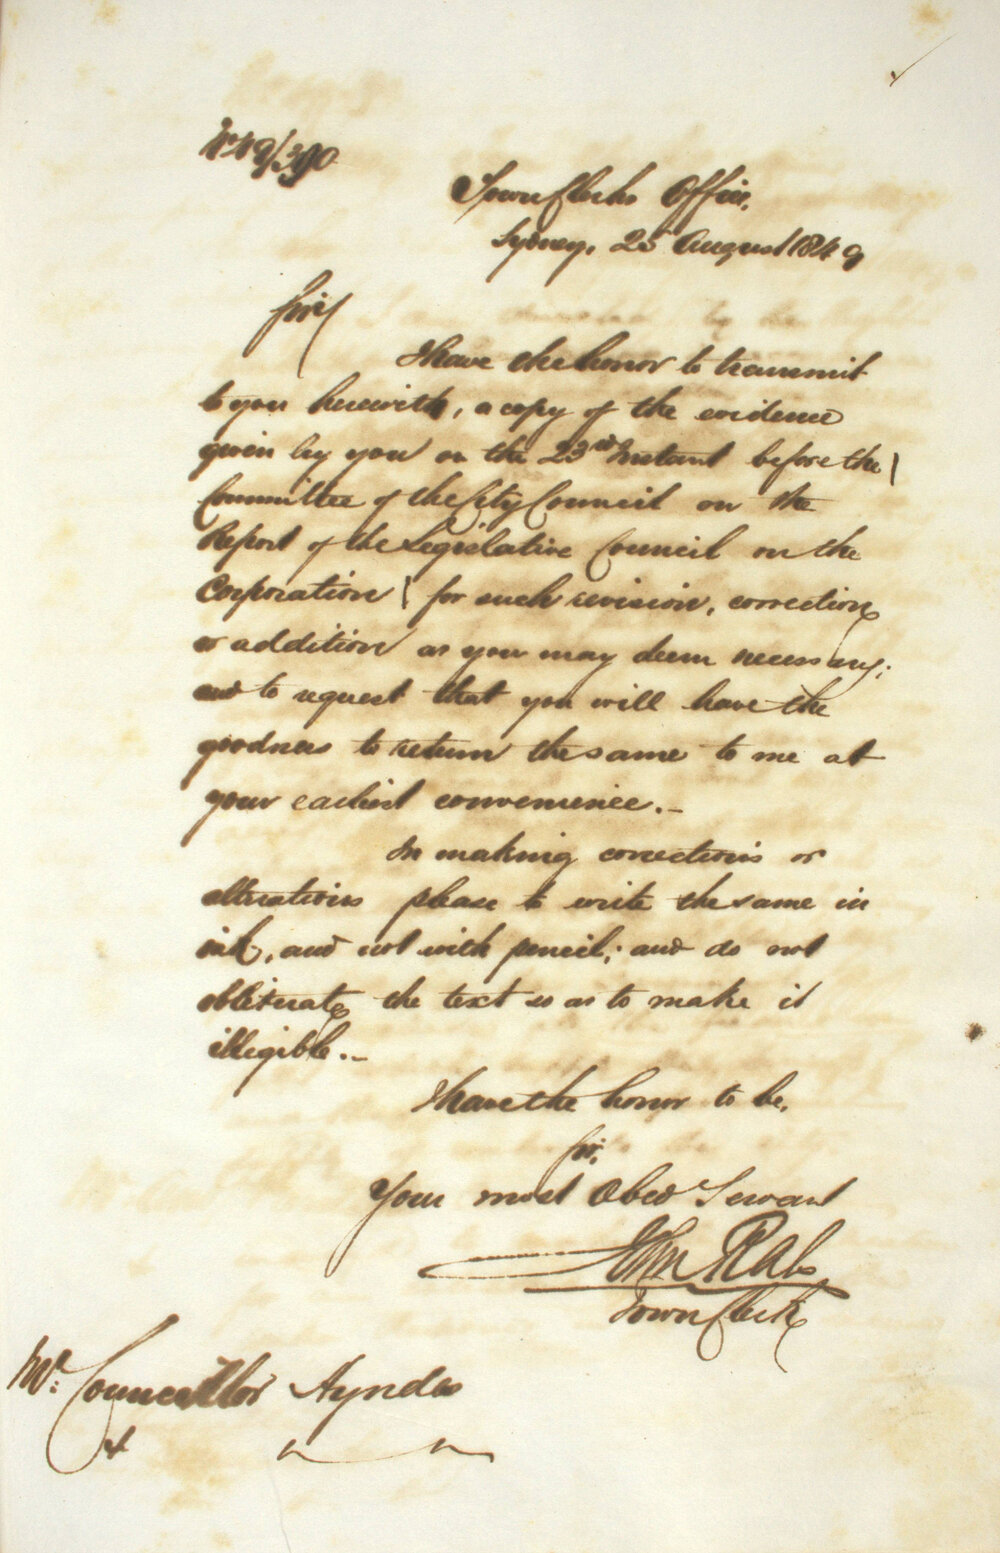 No 49/390
Town Clerks Office,
Sydney, 25 August 1849
Sir
I have the honor to transmit
to you herewith, a copy of the evidence
given by you on the 23rd Instant before the
Committee of the City Council on the
Report of the Legislative Council on the
Corporation for such revision, correction
or addition as you may deem necessary;
and to request that you will have the
goodness to return the same to me at
your earliest convenience.
In making corrections or
alterations please to write the same in
ink, and not with pencil; and do not
obliterate the text so as to make it
illegible.
I have the honor to be,
Sir,
Your most Obed Servant
John Rae
Town Clerk
Mr. Councillor